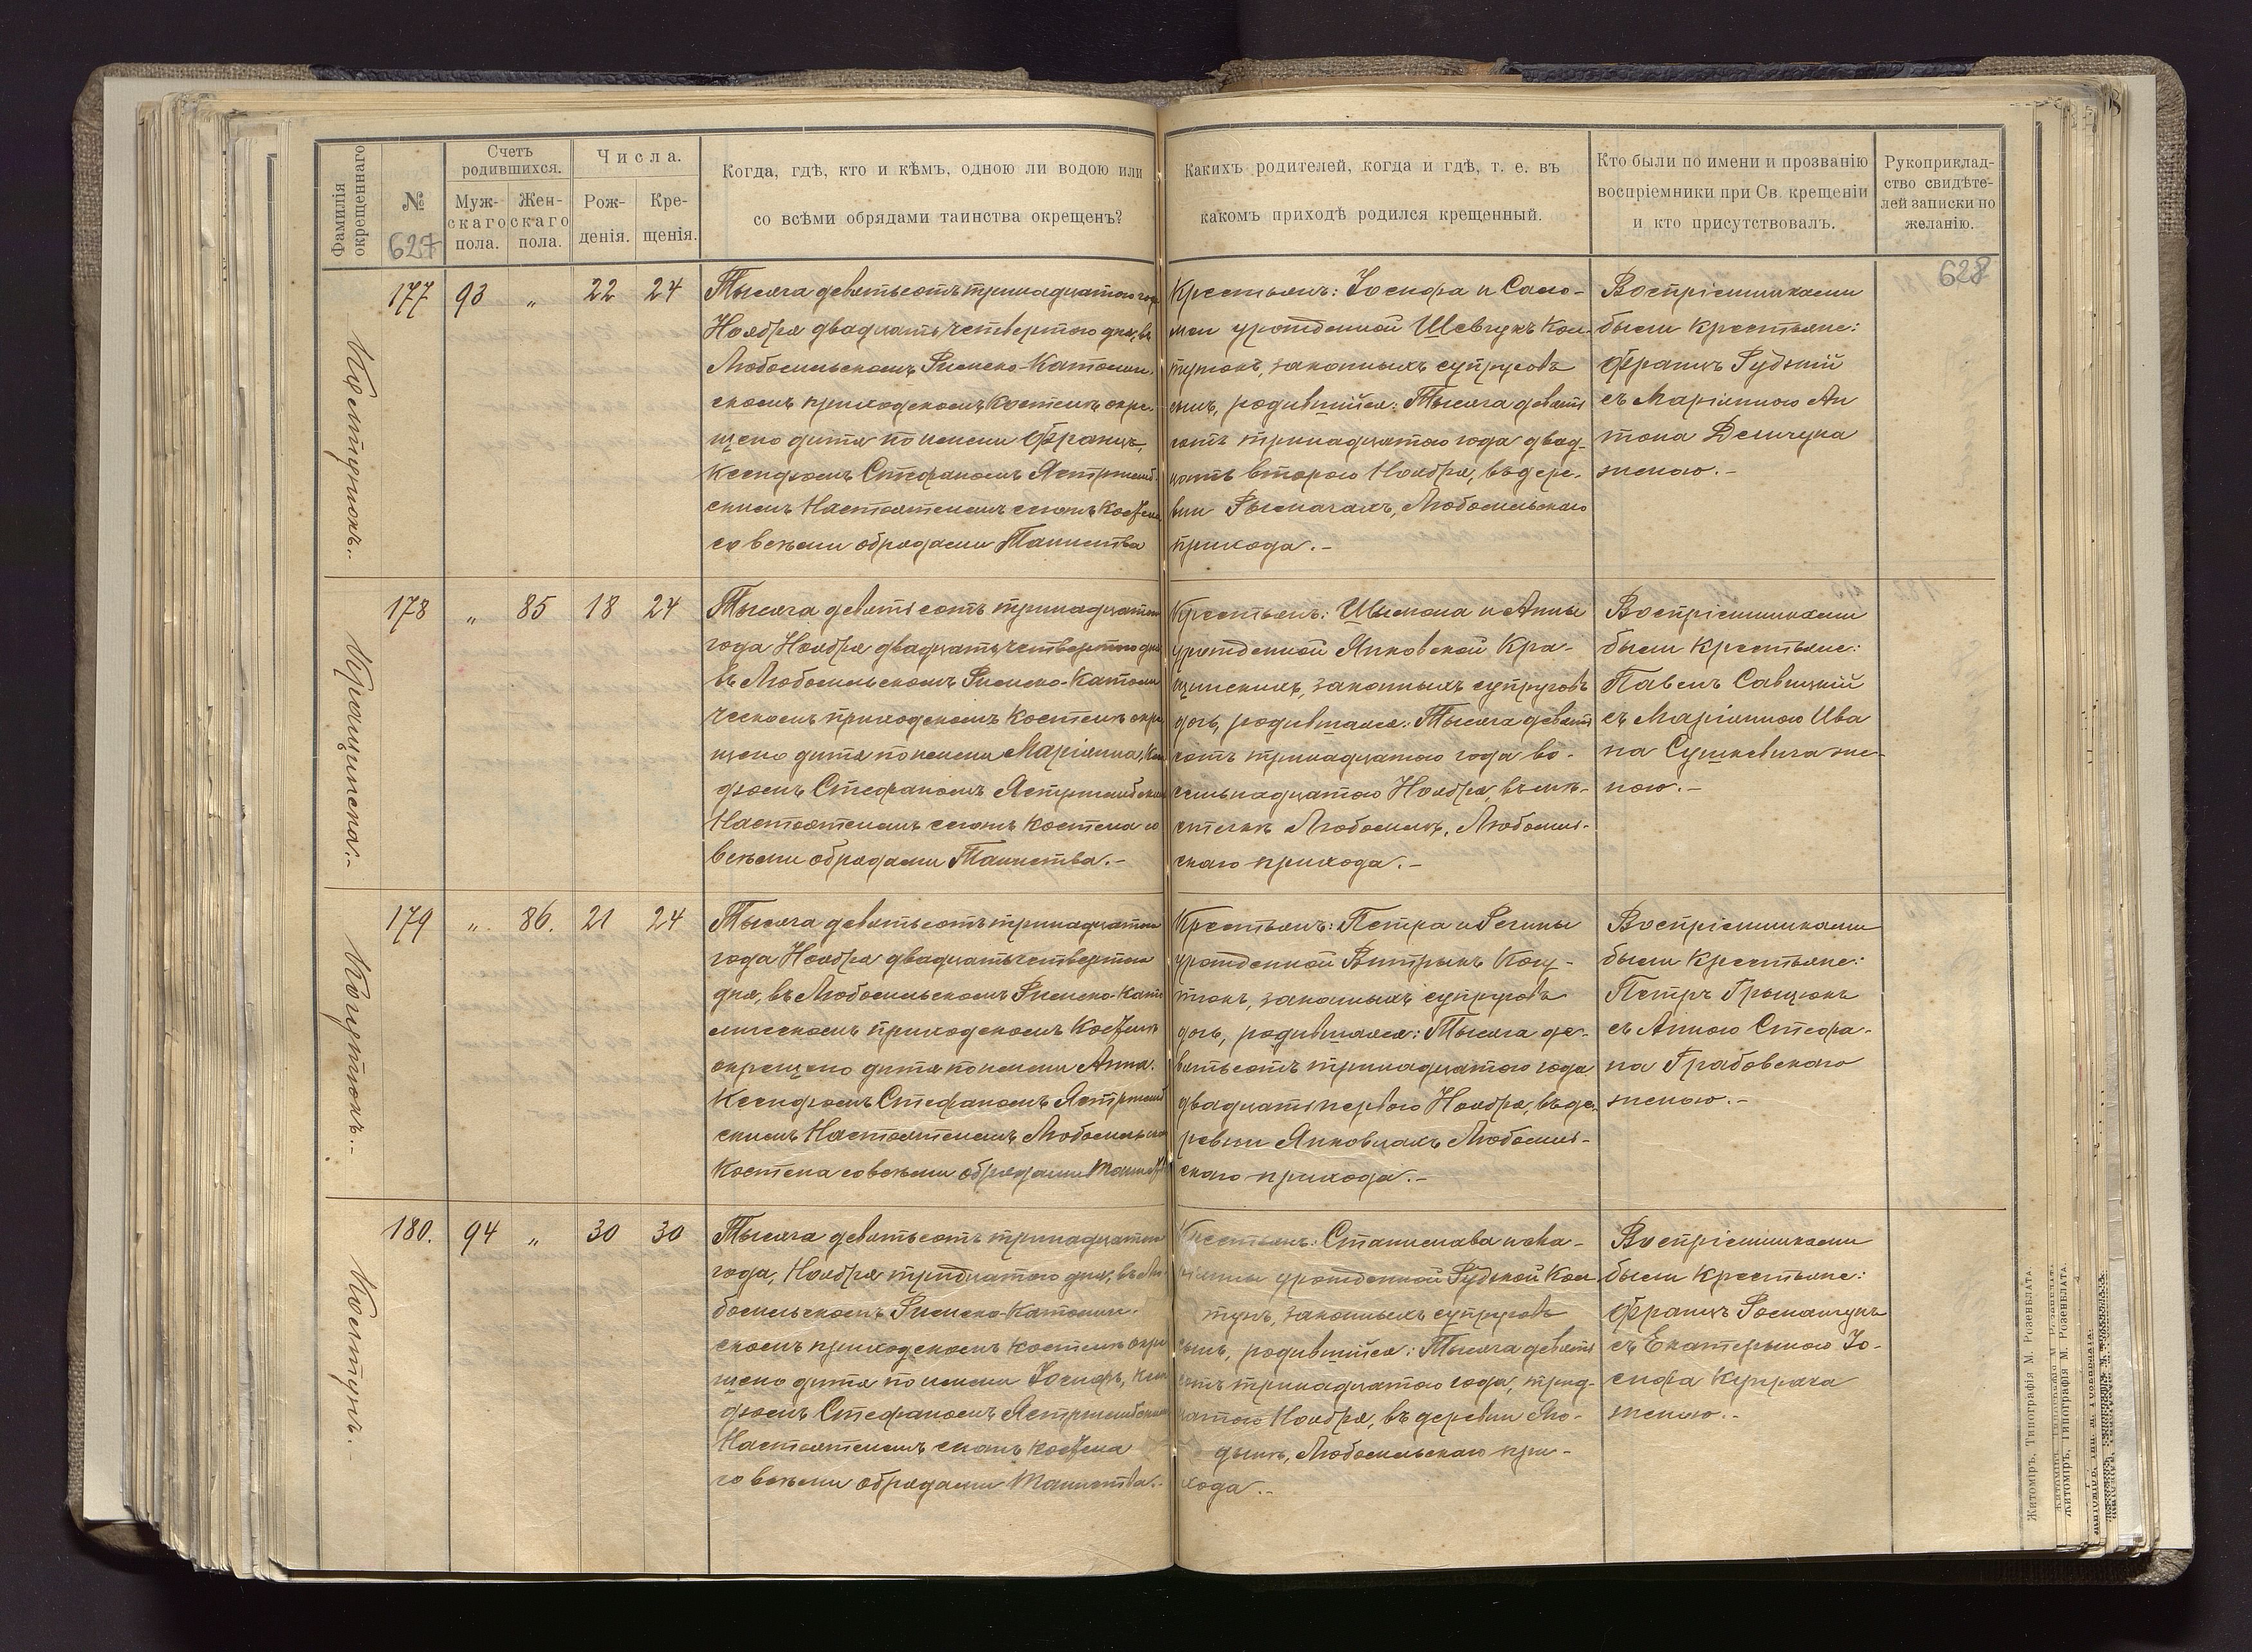 Фамилія окрещеннаго
№
627
Счетъ родившихся.
Муж-скаго пола.
Жен-скаго пола.
Числа.
Рож-денія.
Кре-щенія.
Когда, гдѣ, кто и кѣмъ, одною ли водою или
со всѣми обрядами таинства окрещенъ?
Какихъ родителей, когда и гдѣ, т. е. въ
какомъ приходѣ родился крещенный.
Кто были по имени и прозванію
воспріемники при Св. крещеніи
и кто присутствовалъ.
Рукоприклад-
ство свидѣте-
лей записки по
желанію.
628
Колтунюкъ.
177 93 „ 22 24
Тысяча девятьсотъ тринадцатого года
Ноября двадцать четвертого дня, въ
Любомльскомъ Римско-Католич.
скомъ приходскомъ Костелѣ окре-
щено дитя по имени Францъ,
Ксендзомъ Стефаномъ Ястржемб-
скимъ Настоятелемъ сегожъ Костела
со всѣми обрядами Таинства
Крестьянъ: Іосифа и Сало-
меи урожденной Шевчукъ Кол-
тунюкъ, законныхъ супруговъ
сынъ, родившійся: Тысяча девять
сотъ тринадцатого года двад-
цать второго Ноября, въ дере-
вни Рымачахъ, Любомльскаго
прихода.-
Воспріемниками
были Крестьяне:
Францъ Рудзкій
съ Маріянною Ан
тона Демчука
женою.-
Кращинска.-
178 „ 85 18 24
Тысяча девятьсотъ тринадцатого
года Ноября двадцать четвертого дня
въ Любомльскомъ Римско-Католи
ческомъ приходскомъ Костелѣ окре
щено дитя по имени Маріянна, Ксен
дзомъ Стефаномъ Ястржембским
Настоятелемъ сегожъ Костела со
всѣми обрядами Таинства.-
Крестьянъ: Шымона и Анны
урожденной Янковской Кра-
щинскихъ, законныхъ супруговъ
дочь, родившаяся: Тысяча девять
сотъ тринадцатого года во-
семьнадцатого Ноября, въ мѣ-
стечкѣ Любомлѣ, Любомль-
скаго прихода.-
Воспріемниками
были Крестьяне:
Павелъ Савицкій
съ Маріянною Ива
на Сушкевича же-
ною.-
Коцутюкъ.-
179 „ 86. 21 24
Тысяча девятьсотъ тринадцатого
года Ноября двадцать четвертого
дня, въ Любомльскомъ Римско-Като
лическомъ приходскомъ Костелѣ
окрещено дитя по имени Анна.
Ксендзомъ Стефаномъ Ястржемб
скимъ Настоятелемъ Любомльскаго
Костела со всѣми обрядами Таинства
Крестьянъ: Петра и Регины
урожденной Витрыкъ Коцу-
тюкъ, законныхъ супруговъ
дочь, родившаяся: Тысяча де-
вятьсотъ тринадцатого года
двадцать перваго Ноября, въ де-
ревни Янковцахъ Любомль-
скаго прихода.-
Воспріемниками
были Крестьяне:
Петръ Грыцюкъ
съ Анною Стефа-
на Грабовскаго
женою.-
Колтунъ.
180. 94 „ 30 30
Тысяча девятьсотъ тринадцатого
года, Ноября тридцатого дня, въ Лю
бомльскомъ Римско-Католич.
скомъ приходскомъ Костелѣ окре
щено дитя по имени Іосифъ, Ксен
дзомъ Стефаномъ Ястржембским
Настоятелемъ сегожъ Костела
со всѣми обрядами Таинства.-
Крестьянъ: Станислава и Ма-
ріянны урожденной Рудзкой Кол
тунъ, законныхъ супруговъ
сынъ, родившійся: Тысяча девять
сотъ тринадцатого года, трид-
цатого Ноября, въ деревни Яго-
дынѣ, Любомльскаго при-
хода.-
Воспріемниками
были Крестьяне:
Францъ Романчукъ
съ Екатерыною Іо-
сифа Купрача
женою.-
Житоміръ, Типографія М. Розенблата.
Житоміръ, Типографія М. Розенблата.